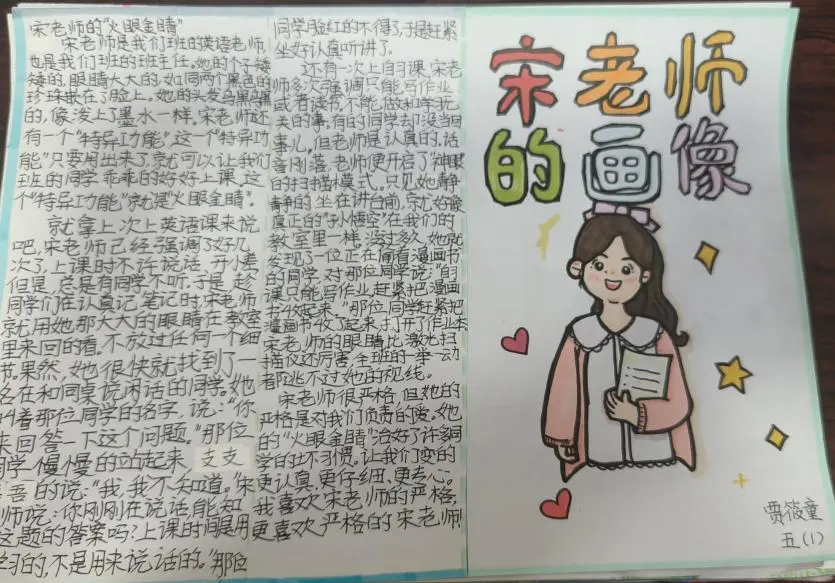 宋老师的“火眼金睛”
宋老师是我们班的英语老师,
也是我们班的班主任。她的个子矮
矮的,眼睛大大的,如同两个黑色的
珍珠嵌在了脸上。她的头发乌黑黑
的,像泼上了墨水一样。宋老师还
有一个“特异功能”,这一个“特异功
能”只要用出来了,就可以让我们
班的同学乖乖的好好上课,这
个“特异功能”就是“火眼金睛”。
就拿上次上英语课来说
吧,宋老师已经强调了好几
次了,上课时不许说话,开小差
但是,总是有同学不听。于是,趁
同学们在认真记笔记时,宋老师
就用她那大大的眼睛在教室
里来回的看。不放过任何一个细
节。果然,她很快就找到了一
名在和同桌说闲话的同学。她
叫着那位同学的名字,说:“你
来回答一下这个问题。”那位
同学慢慢的站起来,支支
的说:“我,我不知道。”宋
师说:你刚刚在说话,能知
这题的答案吗?上课时间是用
学习的,不是用来说话的。”那位
同学脸红的不得了,于是赶紧
坐好认真听讲了。
还有一次上自习课,宋老
师多次强调只能写作业
或者读书,不能做和学习无
关的事。有的同学却没当回
事儿,但老师是认真的,话
音刚落,老师便开启了
的扫描模式。只见她静
静的坐在讲台前,就好像
真正的“孙悟空”在我们的
教室里一样。没过多久,她就
发现了一位正在偷看漫画书
的同学,对那位同学说:“自习
课只能写作业,赶紧把漫画
书收起来。”那位同学赶紧把
漫画书收了起来,打开了作业本
宋老师的眼睛比激光扫
描仪还厉害,全班的一举一动
都逃不过她的视线。
宋老师很严格,但她的
严格是对我们负责的爱。她
的“火眼金睛”治好了许多同
学的坏习惯。让我们变的
更认真、更仔细、更专心。
我喜欢宋老师的严格,
更喜欢严格的宋老师!
宋老师
的画像
贾筱童
五(1)